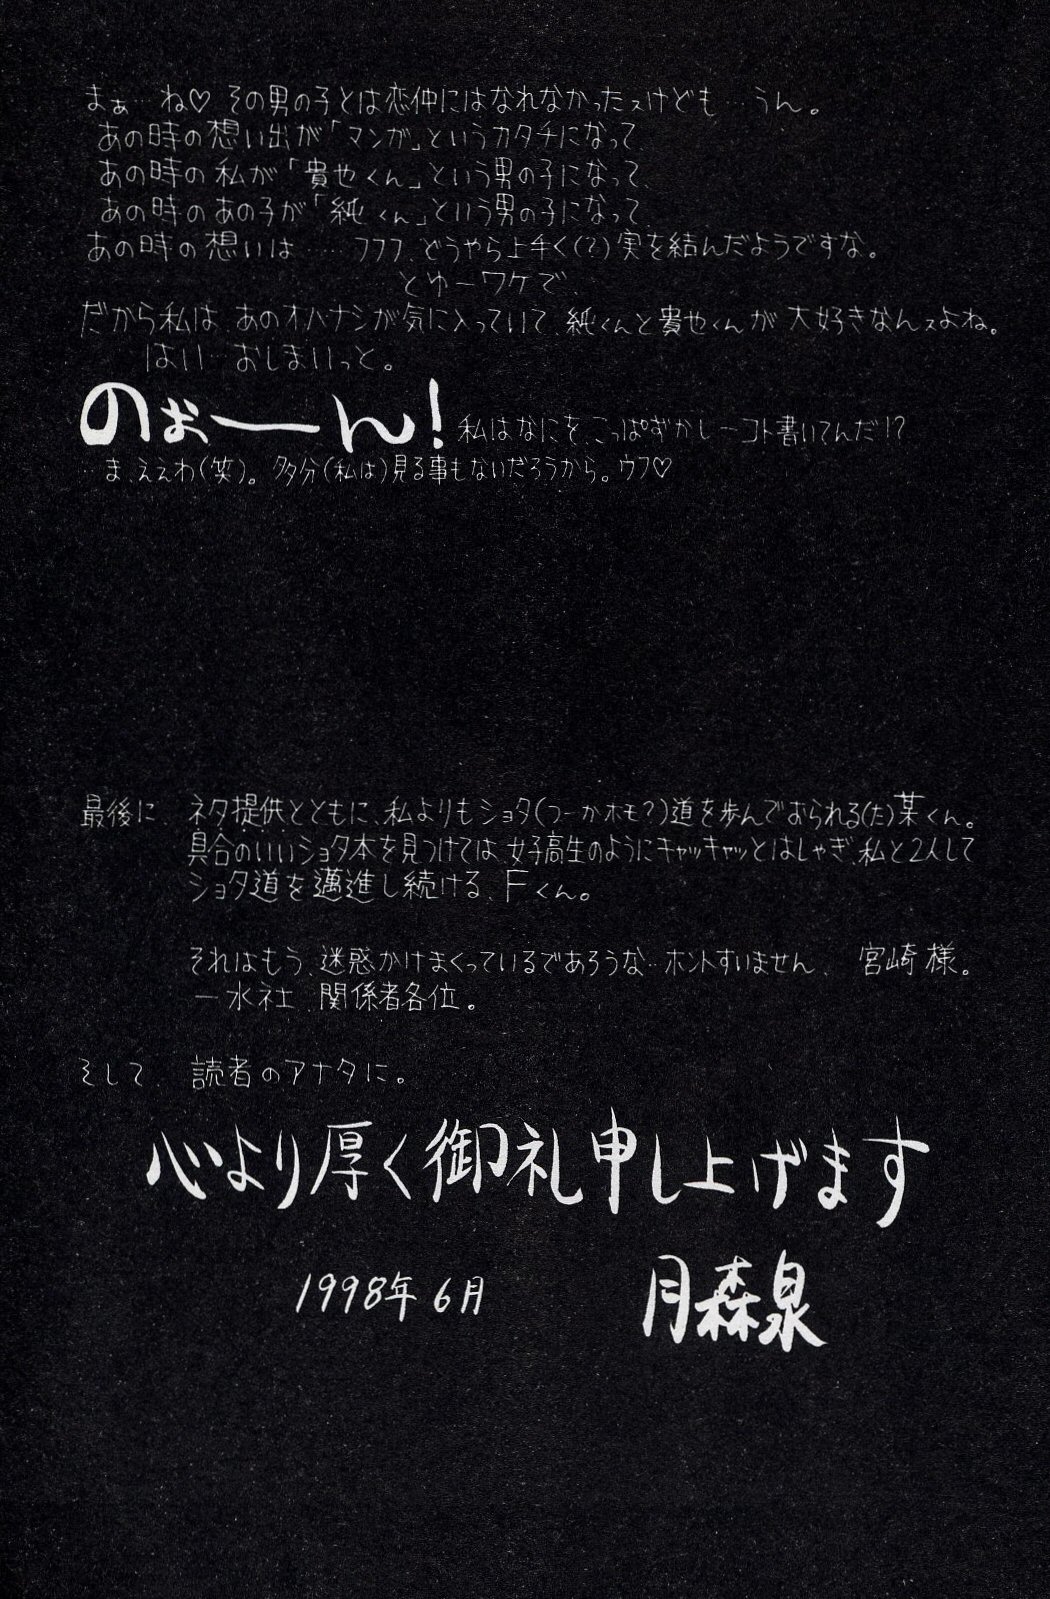 まぁ…ね♡ その男の子とは恋仲にはなれなかったスけども…うん。
あの時の想い出が「マンガ」というカタチになって、
あの時の私が「貴也くん」という男の子になって、
あの時のあの子が「純くん」という男の子になって、
あの時の想いは……フフフ どうやら上手く(?)実を結んだようですな。
とゆーワケで、
だから私は、あのオハナシが気に入っていて、純くんと貴也くんが 大好きなんスよね。
はい…おしまいっと。
のぉーん! 私はなにを、こっぱずかしーコト書いてんだ!?
…ま、ええわ(笑)。多分(私は)見る事もないだろうから。ウフ♡
最後に、ネタ提供とともに、私よりもショタ(つーかホモ?)道を歩んでおられる(た)某くん。
具合のいいショタ本を見つけては、女子高生のようにキャッキャッとはしゃぎ、私と2人して
ショタ道を邁進し続ける、Fくん。
それはもう、迷惑かけまくっているであろうな…ホントすいません、宮崎様。
一水社 関係者各位。
そして、読者のアナタに。
心より厚く御礼申し上げます
1998年6月 月森泉